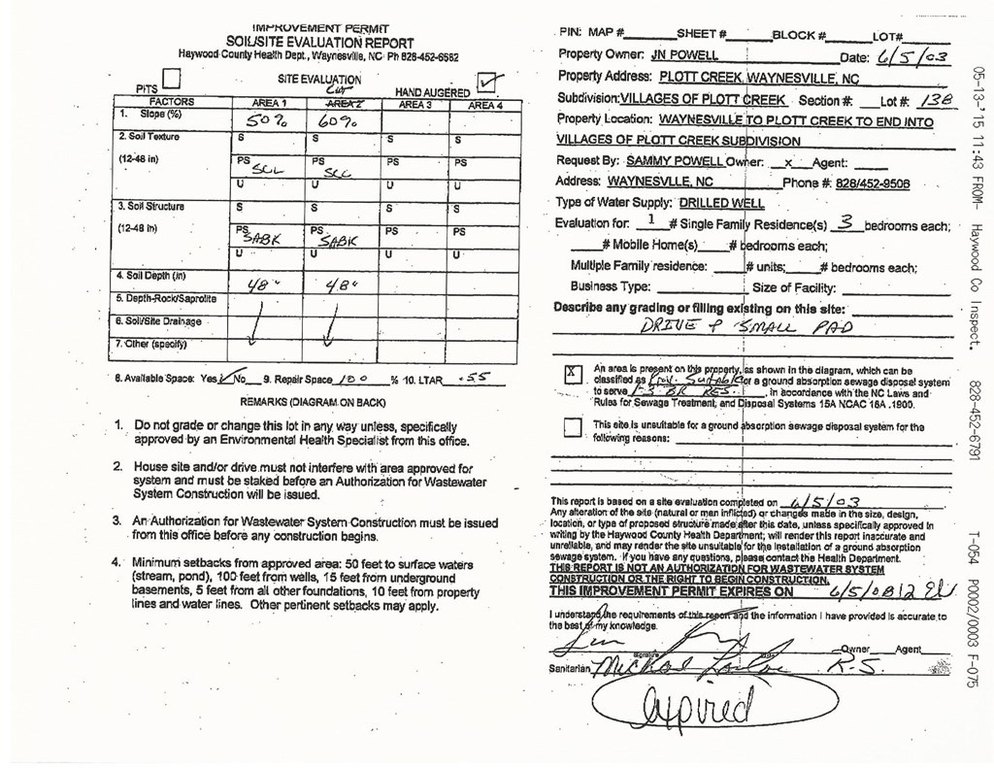 IMPROVEMENT PERMIT
SOIL/SITE EVALUATION REPORT
Haywood County Health Dept., Waynesville, NC Ph 828-452-6682
PITS
SITE EVALUATION
Cut
HAND AUGERED ✓
FACTORS AREA 1 AREA 2 AREA 3 AREA 4
1. Slope (%) 50% 60%
2. Soil Texture S S S S
(12-48 in) PS PS PS PS
SCL SCL
U U U U
3. Soil Structure S S S S
(12-48 in) PS PS PS PS
SABK SABK
U U U U
4. Soil Depth (in) 48" 48"
5. Depth-Rock/Saprolite
6. Soil/Site Drainage
7. Other (specify)
8. Available Space: Yes ✓ No 9. Repair Space 100 % 10. LTAR .55
REMARKS (DIAGRAM ON BACK)
1. Do not grade or change this lot in any way unless, specifically
approved by an Environmental Health Specialist from this office.
2. House site and/or drive must not interfere with area approved for
system and must be staked before an Authorization for Wastewater
System Construction will be issued.
3. An Authorization for Wastewater System Construction must be issued
from this office before any construction begins.
4. Minimum setbacks from approved area: 50 feet to surface waters
(stream, pond), 100 feet from wells, 15 feet from underground
basements, 5 feet from all other foundations, 10 feet from property
lines and water lines. Other pertinent setbacks may apply.
PIN: MAP # SHEET # BLOCK # LOT#
Property Owner: JN POWELL Date: 6/5/03
Property Address: PLOTT CREEK, WAYNESVILLE, NC
Subdivision: VILLAGES OF PLOTT CREEK Section #: Lot #: 138
Property Location: WAYNESVILLE TO PLOTT CREEK TO END INTO
VILLAGES OF PLOTT CREEK SUBDIVISION
Request By: SAMMY POWELL Owner: x Agent:
Address: WAYNESVLLE, NC Phone #: 828/452-9506
Type of Water Supply: DRILLED WELL
Evaluation for: 1 # Single Family Residence(s) 3 bedrooms each;
# Mobile Home(s) # bedrooms each;
Multiple Family residence: # units; # bedrooms each;
Business Type: Size of Facility:
Describe any grading or filling existing on this site:
DRIVE & SMALL PAD
X An area is present on this property, as shown in the diagram, which can be
classified as Prov. Suitable for a ground absorption sewage disposal system
to serve 1-3 BR RES. , in accordance with the NC Laws and
Rules for Sewage Treatment, and Disposal Systems 15A NCAC 18A .1900.
This site is unsuitable for a ground absorption sewage disposal system for the
following reasons:
This report is based on a site evaluation completed on 6/5/03
Any alteration of the site (natural or man inflicted) or changes made in the size, design,
location, or type of proposed structure made after this date, unless specifically approved in
writing by the Haywood County Health Department; will render this report inaccurate and
unreliable, and may render the site unsuitable for the installation of a ground absorption
sewage system. If you have any questions, please contact the Health Department.
THIS REPORT IS NOT AN AUTHORIZATION FOR WASTEWATER SYSTEM
CONSTRUCTION OR THE RIGHT TO BEGIN CONSTRUCTION.
THIS IMPROVEMENT PERMIT EXPIRES ON 6/5/08
I understand the requirements of this report and the information I have provided is accurate to
the best of my knowledge.
Signature Owner Agent
Sanitarian R.S.
Expired
05-13-'15 11:43 FROM- Haywood Co Inspect. 828-452-6791 T-054 P0002/0003 F-075